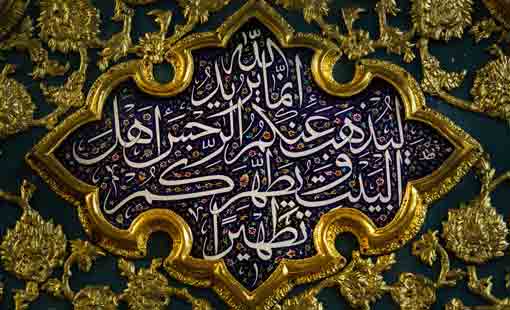 إِنَّمَا يُرِيدُ اللَّه
لِيُذْهِبَ عَنْكُمُ الرِّجْسَ اَهْلَ
الْبَيْتِ وَ يُطَهِّرَكُمْ
تَطْهِيرًا